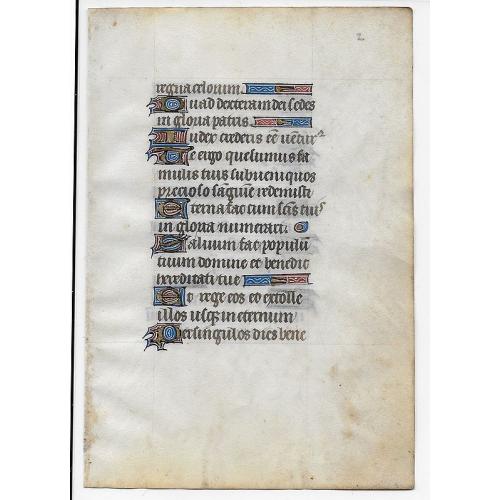 2
regna celorum.
Tu ad dexteram dei sedes
in gloria patris.
Iudex crederis eē ventur⁹
Te ergo quesumus fa
mulis tuis subueni quos
precioso sāguīe redemisti
Eterna fac cum scīs tuis
in gloria numerari.
Saluum fac populū
tuum domine et benedic
hereditati tue
Et rege eos et extolle
illos usqȝ in eternum
Per singulos dies bene